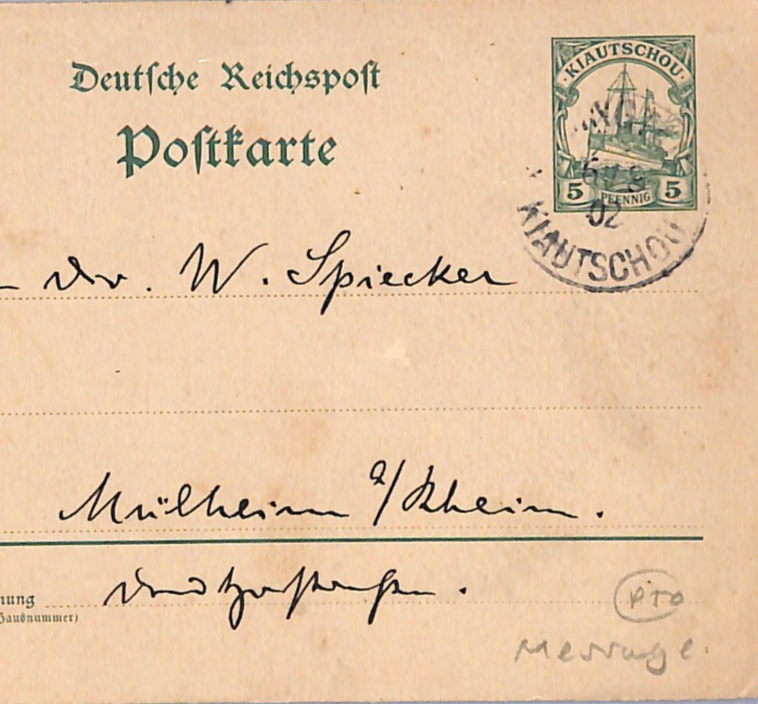 Deutsche Reichspost
Postkarte
KIAUTSCHOU
5 PFENNIG 5
6/9
02
KIAUTSCHOU
Dr. W. Spiecker
Mülheim a/Rhein.
nung
Hausnummer)
PTO
Message.